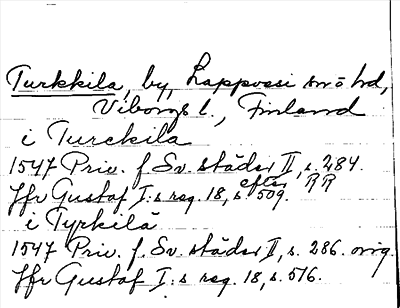 Turkkila, by, Lappvesi snö hd,
Viborgs l., Finland
i Turckila
1547 Priv. f. Sv. städer II, s. 284.
Jfr Gustaf I:s reg. 18, s 509. efter RR
i Tyrkilä
1547 Priv. f. Sv. städer II, s. 286. orig.
Jfr Gustaf I:s reg. 18, s. 516.